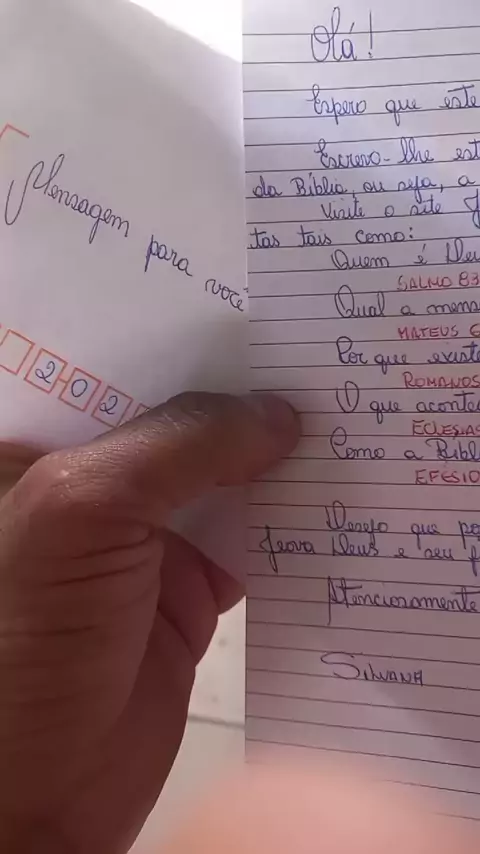 Mensagem para você
202
Olá!
Espero que este
Escrevo-lhe est
da Bíblia, ou seja, a
Visite o site
tas tais como:
Quem é Deu
SALMO 83
Qual a mens
MATEUS 6
Por que existe
ROMANOS
O que aconte
ECLESIAS
Como a Bíbl
EFÉSIO
Desejo que po
Jeová Deus e seu f
Atenciosamente
SILVANA